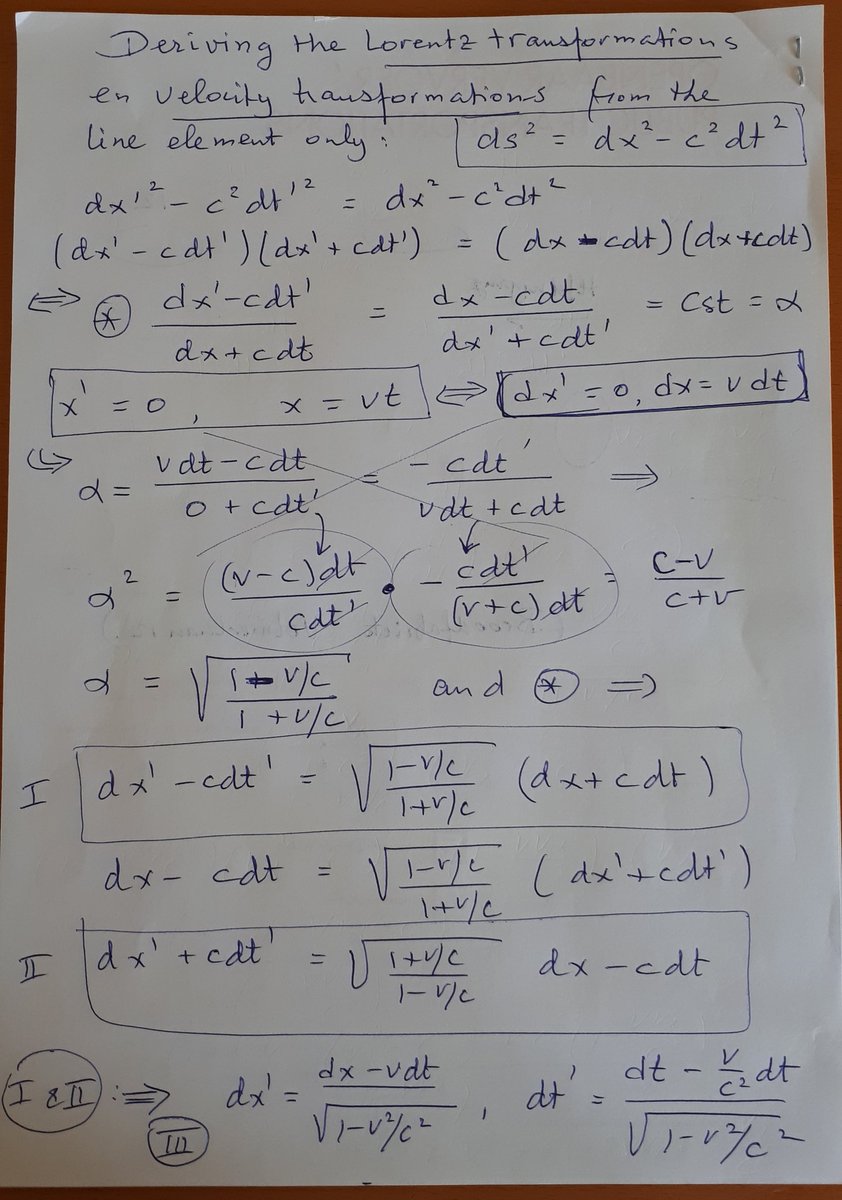 Deriving the Lorentz transformations
en velocity transformations from the
line element only: ds² = dx² - c²dt²
dx'² - c²dt'² = dx² - c²dt²
(dx' - cdt')(dx' + cdt') = (dx - cdt)(dx + cdt)
⇔ ⊛ (dx' - cdt')/(dx + cdt) = (dx - cdt)/(dx' + cdt') = Cst = α
x' = 0, x = vt ⇔ dx' = 0, dx = v dt
↪ α = (vdt - cdt)/(0 + cdt') = (-cdt')/(vdt + cdt) ⇒
α² = (v - c)dt/cdt' • - cdt'/(v + c)dt = (c - v)/(c + v)
α = √((1 - v/c)/(1 + v/c)) and ⊛ ⇒
I dx' - cdt' = √((1 - v/c)/(1 + v/c)) (dx + cdt)
dx - cdt = √((1 - v/c)/(1 + v/c)) (dx' + cdt')
II dx' + cdt' = √((1 + v/c)/(1 - v/c)) dx - cdt
I & II : ⇒ III dx' = (dx - vdt)/√(1 - v²/c²), dt' = (dt - v/c² dt)/√(1 - v²/c²)